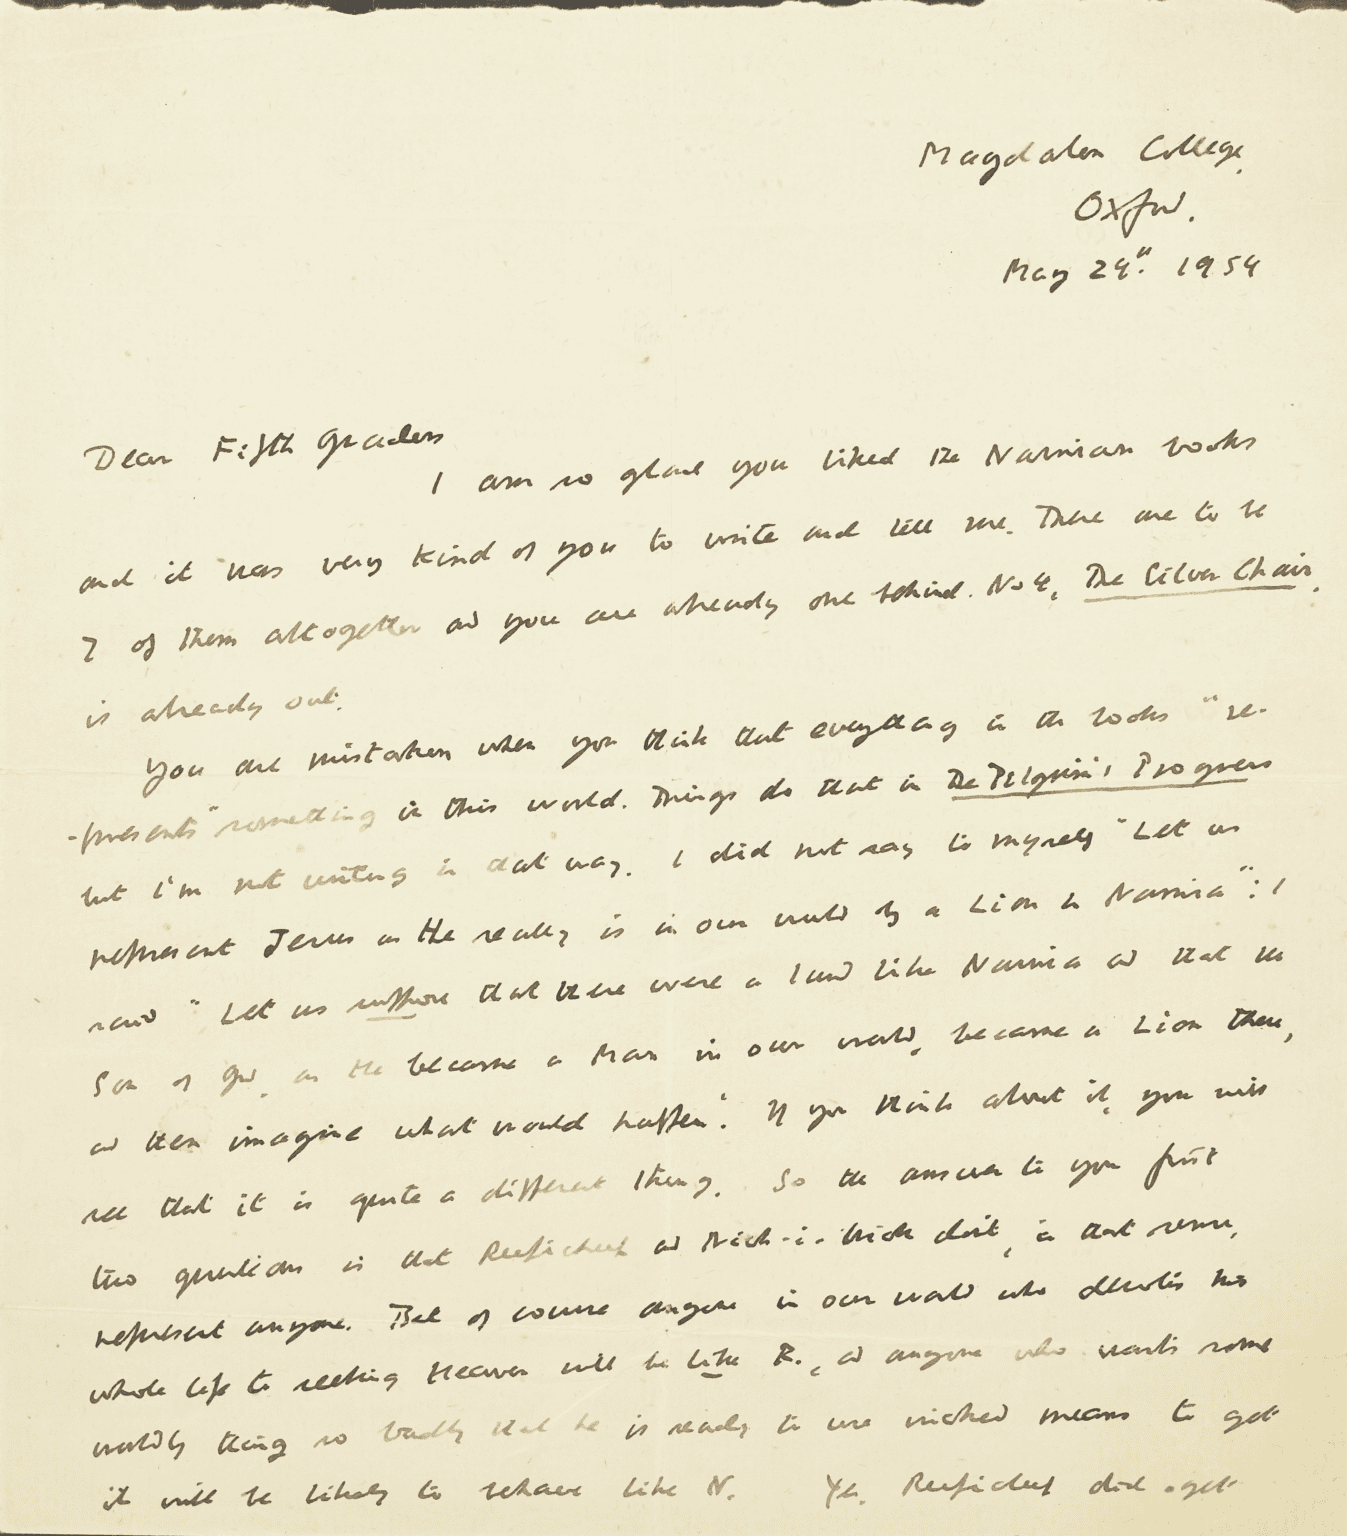 Magdalen College,
Oxford.
May 24th. 1954
Dear Fifth Graders
I am so glad you liked the Narnian books
and it was very kind of you to write and tell me. There are to be
7 of them altogether and you are already one behind. No 4, The Silver Chair,
is already out.
You are mistaken when you think that everything in the books "re-
-presents" something in this world. Things do that in The Pilgrim's Progress
but I'm not writing in that way. I did not say to myself "Let us
represent Jesus as He really is in our world by a Lion in Narnia": I
said "Let us suppose that there were a land like Narnia and that the
Son of God, as He became a Man in our world, became a Lion there,
and then imagine what would happen". If you think about it, you will
see that it is quite a different thing. So the answer to your first
two questions is that Reepicheep and Nick-i-brick don't, in that sense,
represent anyone. But of course anyone in our world who devotes his
whole life to seeking Heaven will be like R., and anyone who wants some
worldly thing so badly that he is ready to use wicked means to get
it will be likely to behave like N. Yes, Reepicheep did get